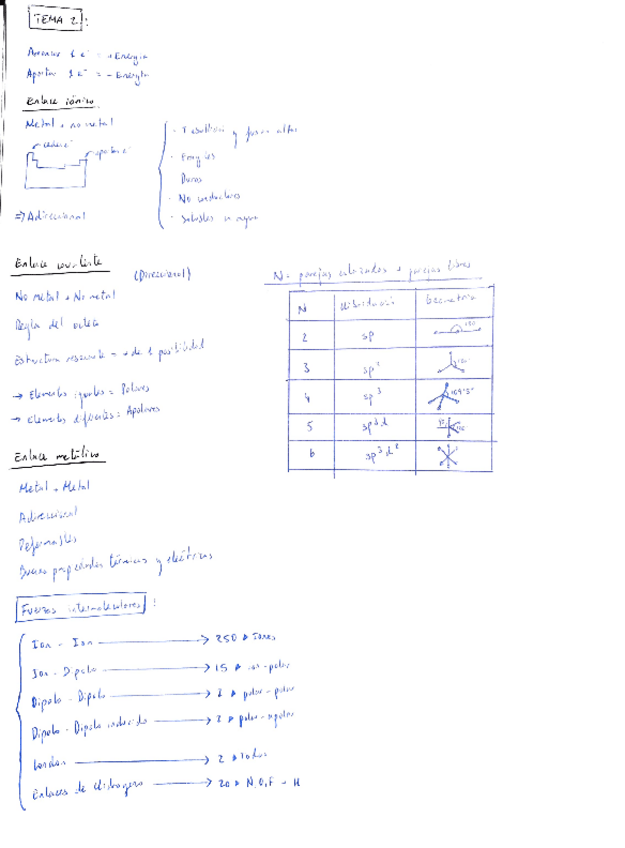 TEMA 2:
Arrancar 1 e⁻ = + Energía
Aportar 1 e⁻ = - Energía
Enlace iónico
Metal + no metal
cede e⁻
aporta e⁻
=> Adireccional
· T ebullición y fusión altas
· Frágiles
Duros
· No conductores
· Solubles en agua
Enlace covalente
(Direccional)
No metal + No metal
Regla del octeto
Estructura resonante = + de 1 posibilidad
→ Elementos iguales = Polares
→ Elementos diferentes = Apolares
N = parejas enlazadas + parejas libres
N Hibridación Geometría
2 sp 180
3 sp² 120
4 sp³ 109'5°
5 sp³d 90 120
6 sp³d²
Enlace metálico
Metal + Metal
Adireccional
Deformables
Buenas propiedades térmicas y eléctricas
Fuerzas intermoleculares:
Ion - Ion → 250 Iones
Ion - Dipolo → 15 ion-polar
Dipolo - Dipolo → 2 polar-polar
Dipolo - Dipolo inducido → 2 polar-apolar
London → 2 Todas
Enlaces de Hidrógeno → 20 N,O,F - H